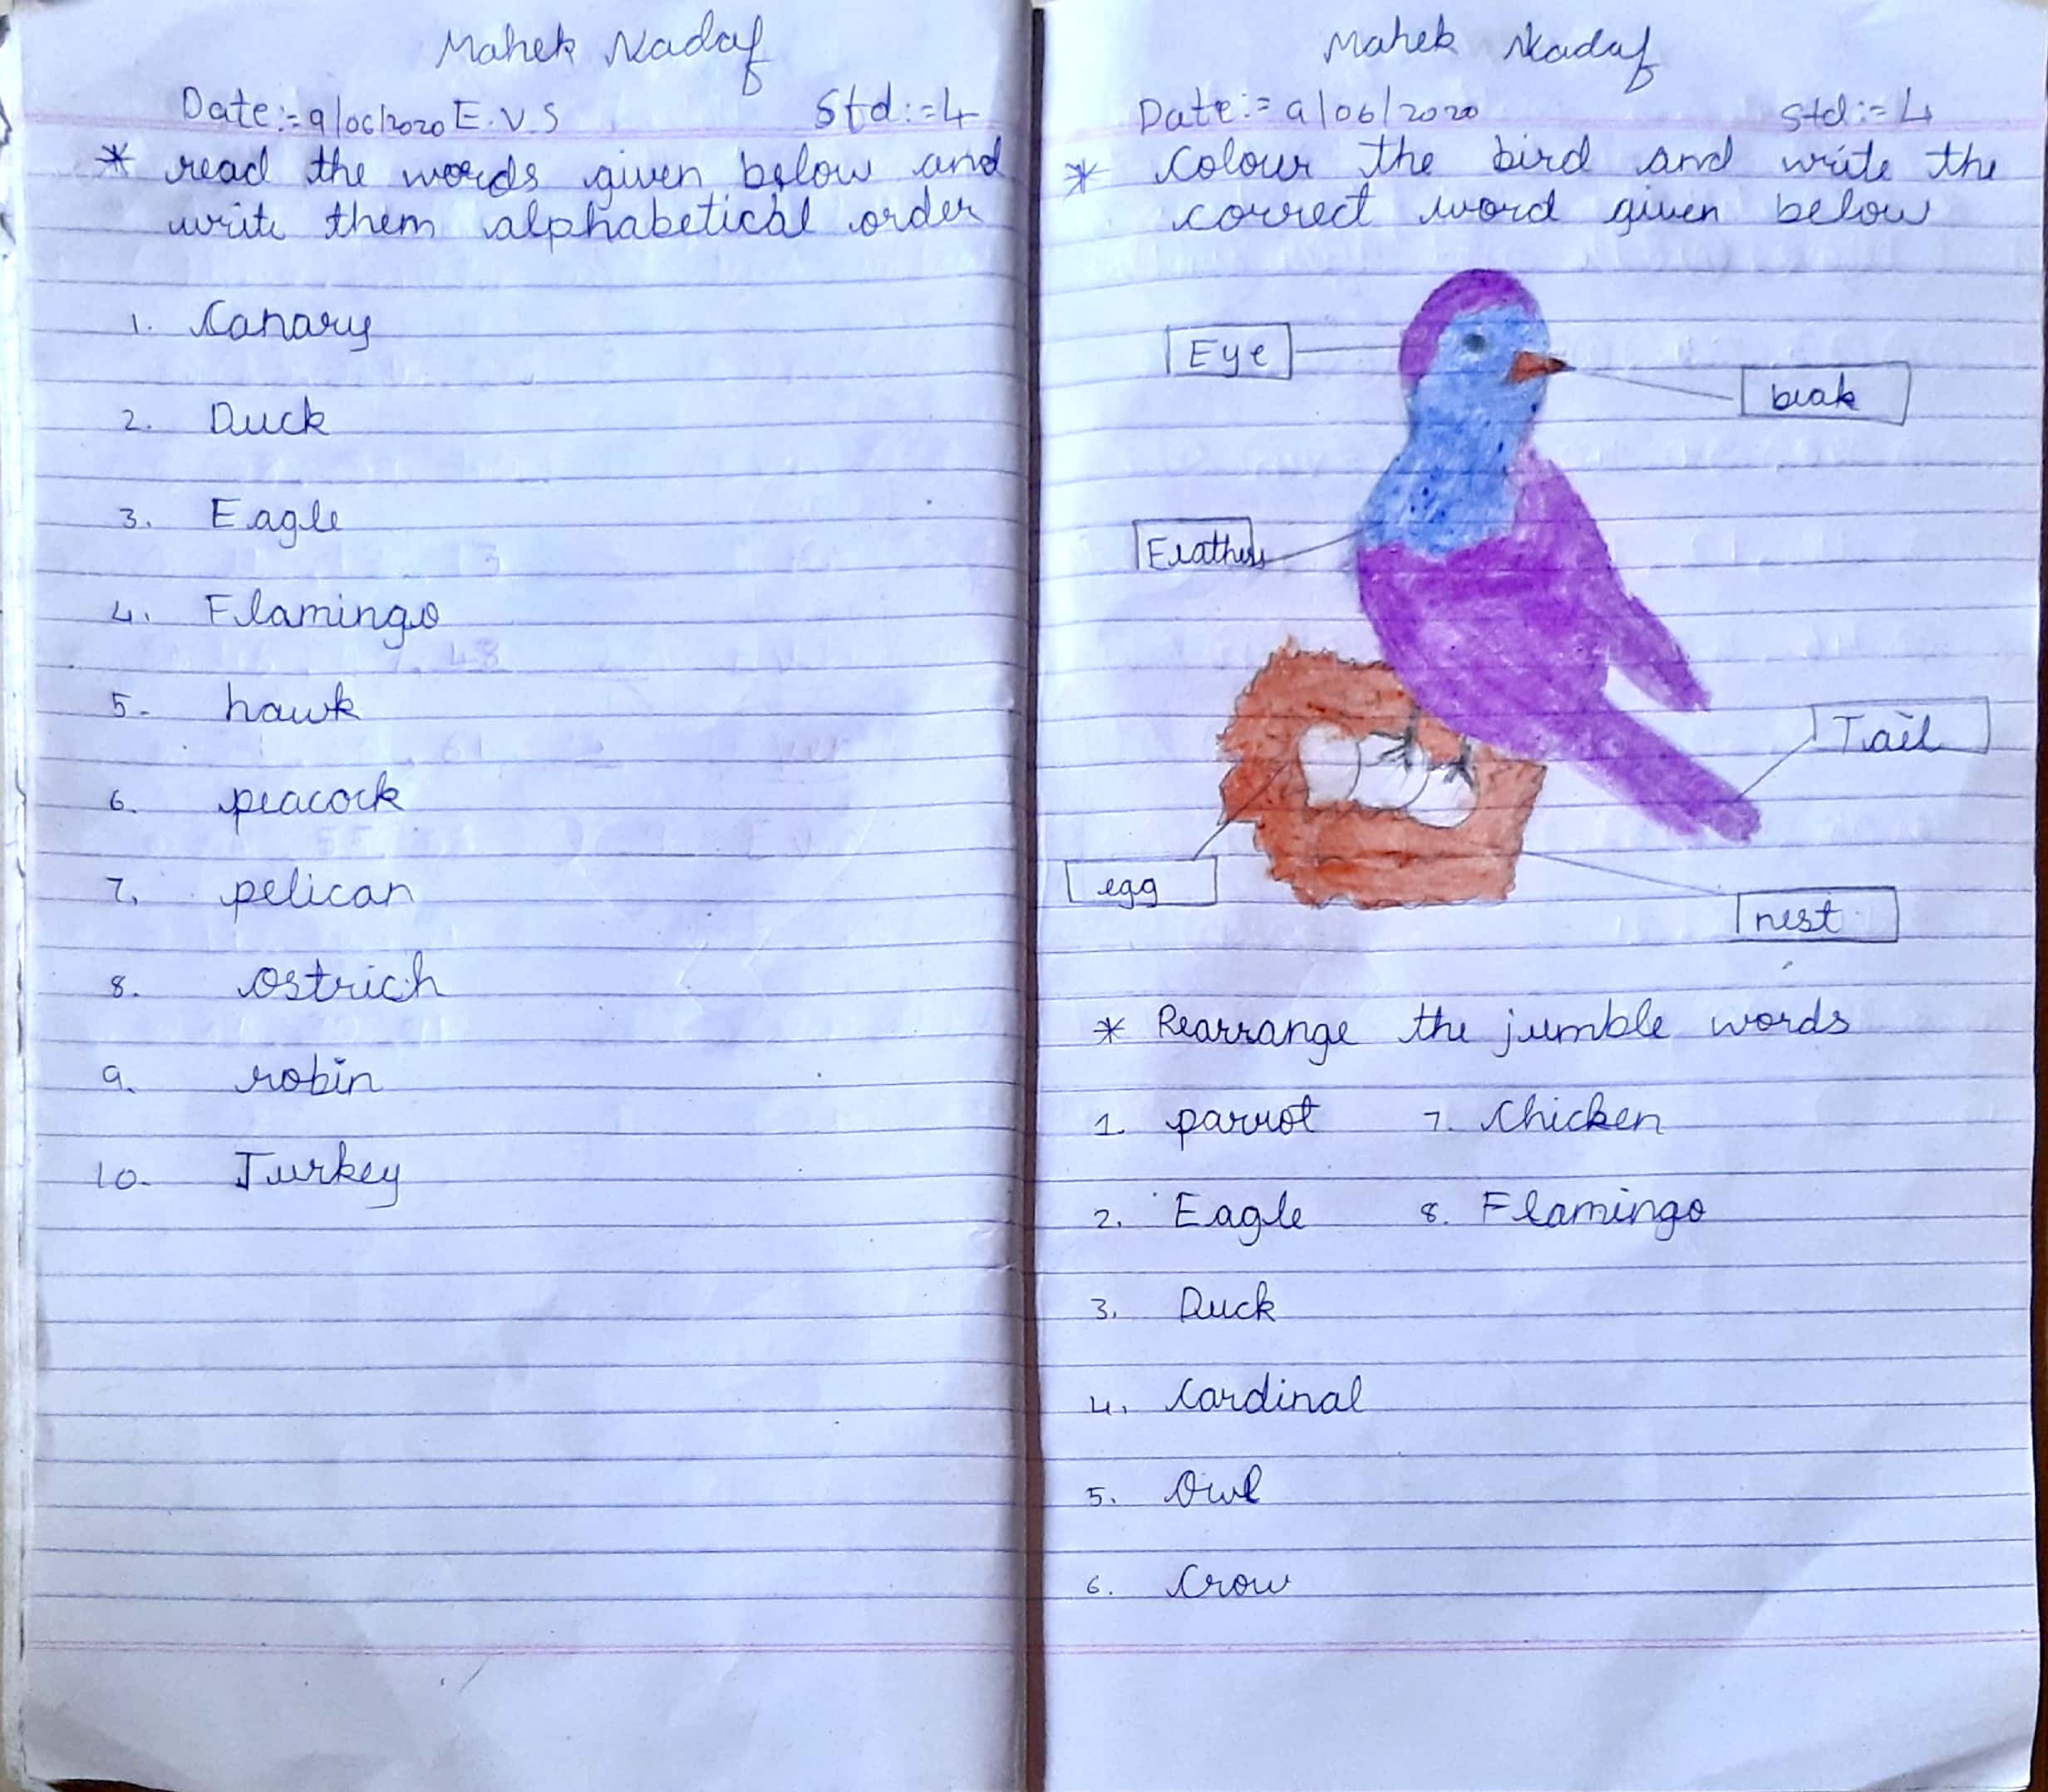 Mahek Nadaf
Date:- 9/06/2020 E.V.S Std:-4
* read the words given below and
write them alphabetical order
1. Canary
2. Duck
3. Eagle
4. Flamingo
5. hawk
6. peacock
7. pelican
8. ostrich
9. robin
10. Turkey
Mahek Nadaf
Date:- 9/06/2020 Std:- 4
* Colour the bird and write the
correct word given below
Eye
beak
Tail
egg
nest
* Rearrange the jumble words
1. parrot 7. Chicken
2. Eagle 8. Flamingo
3. Duck
4. Cardinal
5. Owl
6. Crow